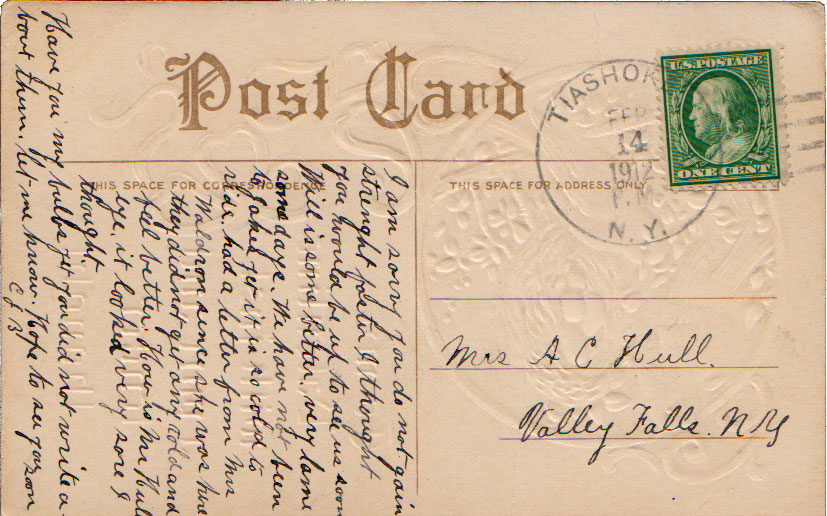 Post Card
THIS SPACE FOR CORRESPONDENCE
THIS SPACE FOR ADDRESS ONLY
U.S. POSTAGE
ONE CENT
TIASHOK
FEB
14
1912
P.M.
N.Y.
Mrs A C Hull.
Valley Falls. N Y
I am sorry you do not gain
strenght faster I thought
you would be up to see us soon
Will is some better. very lame
some days. We have not been
to Jakes yet it is so cold to
ride. had a letter from Mrs
Waldron since she was here
they did not get any cold and
feel better. How is Mr Hull
eye, it looked very sore I
thought.
Have you my bulbs yet you did not write a-
bout them. let me know. Hope to see you soon
C J B